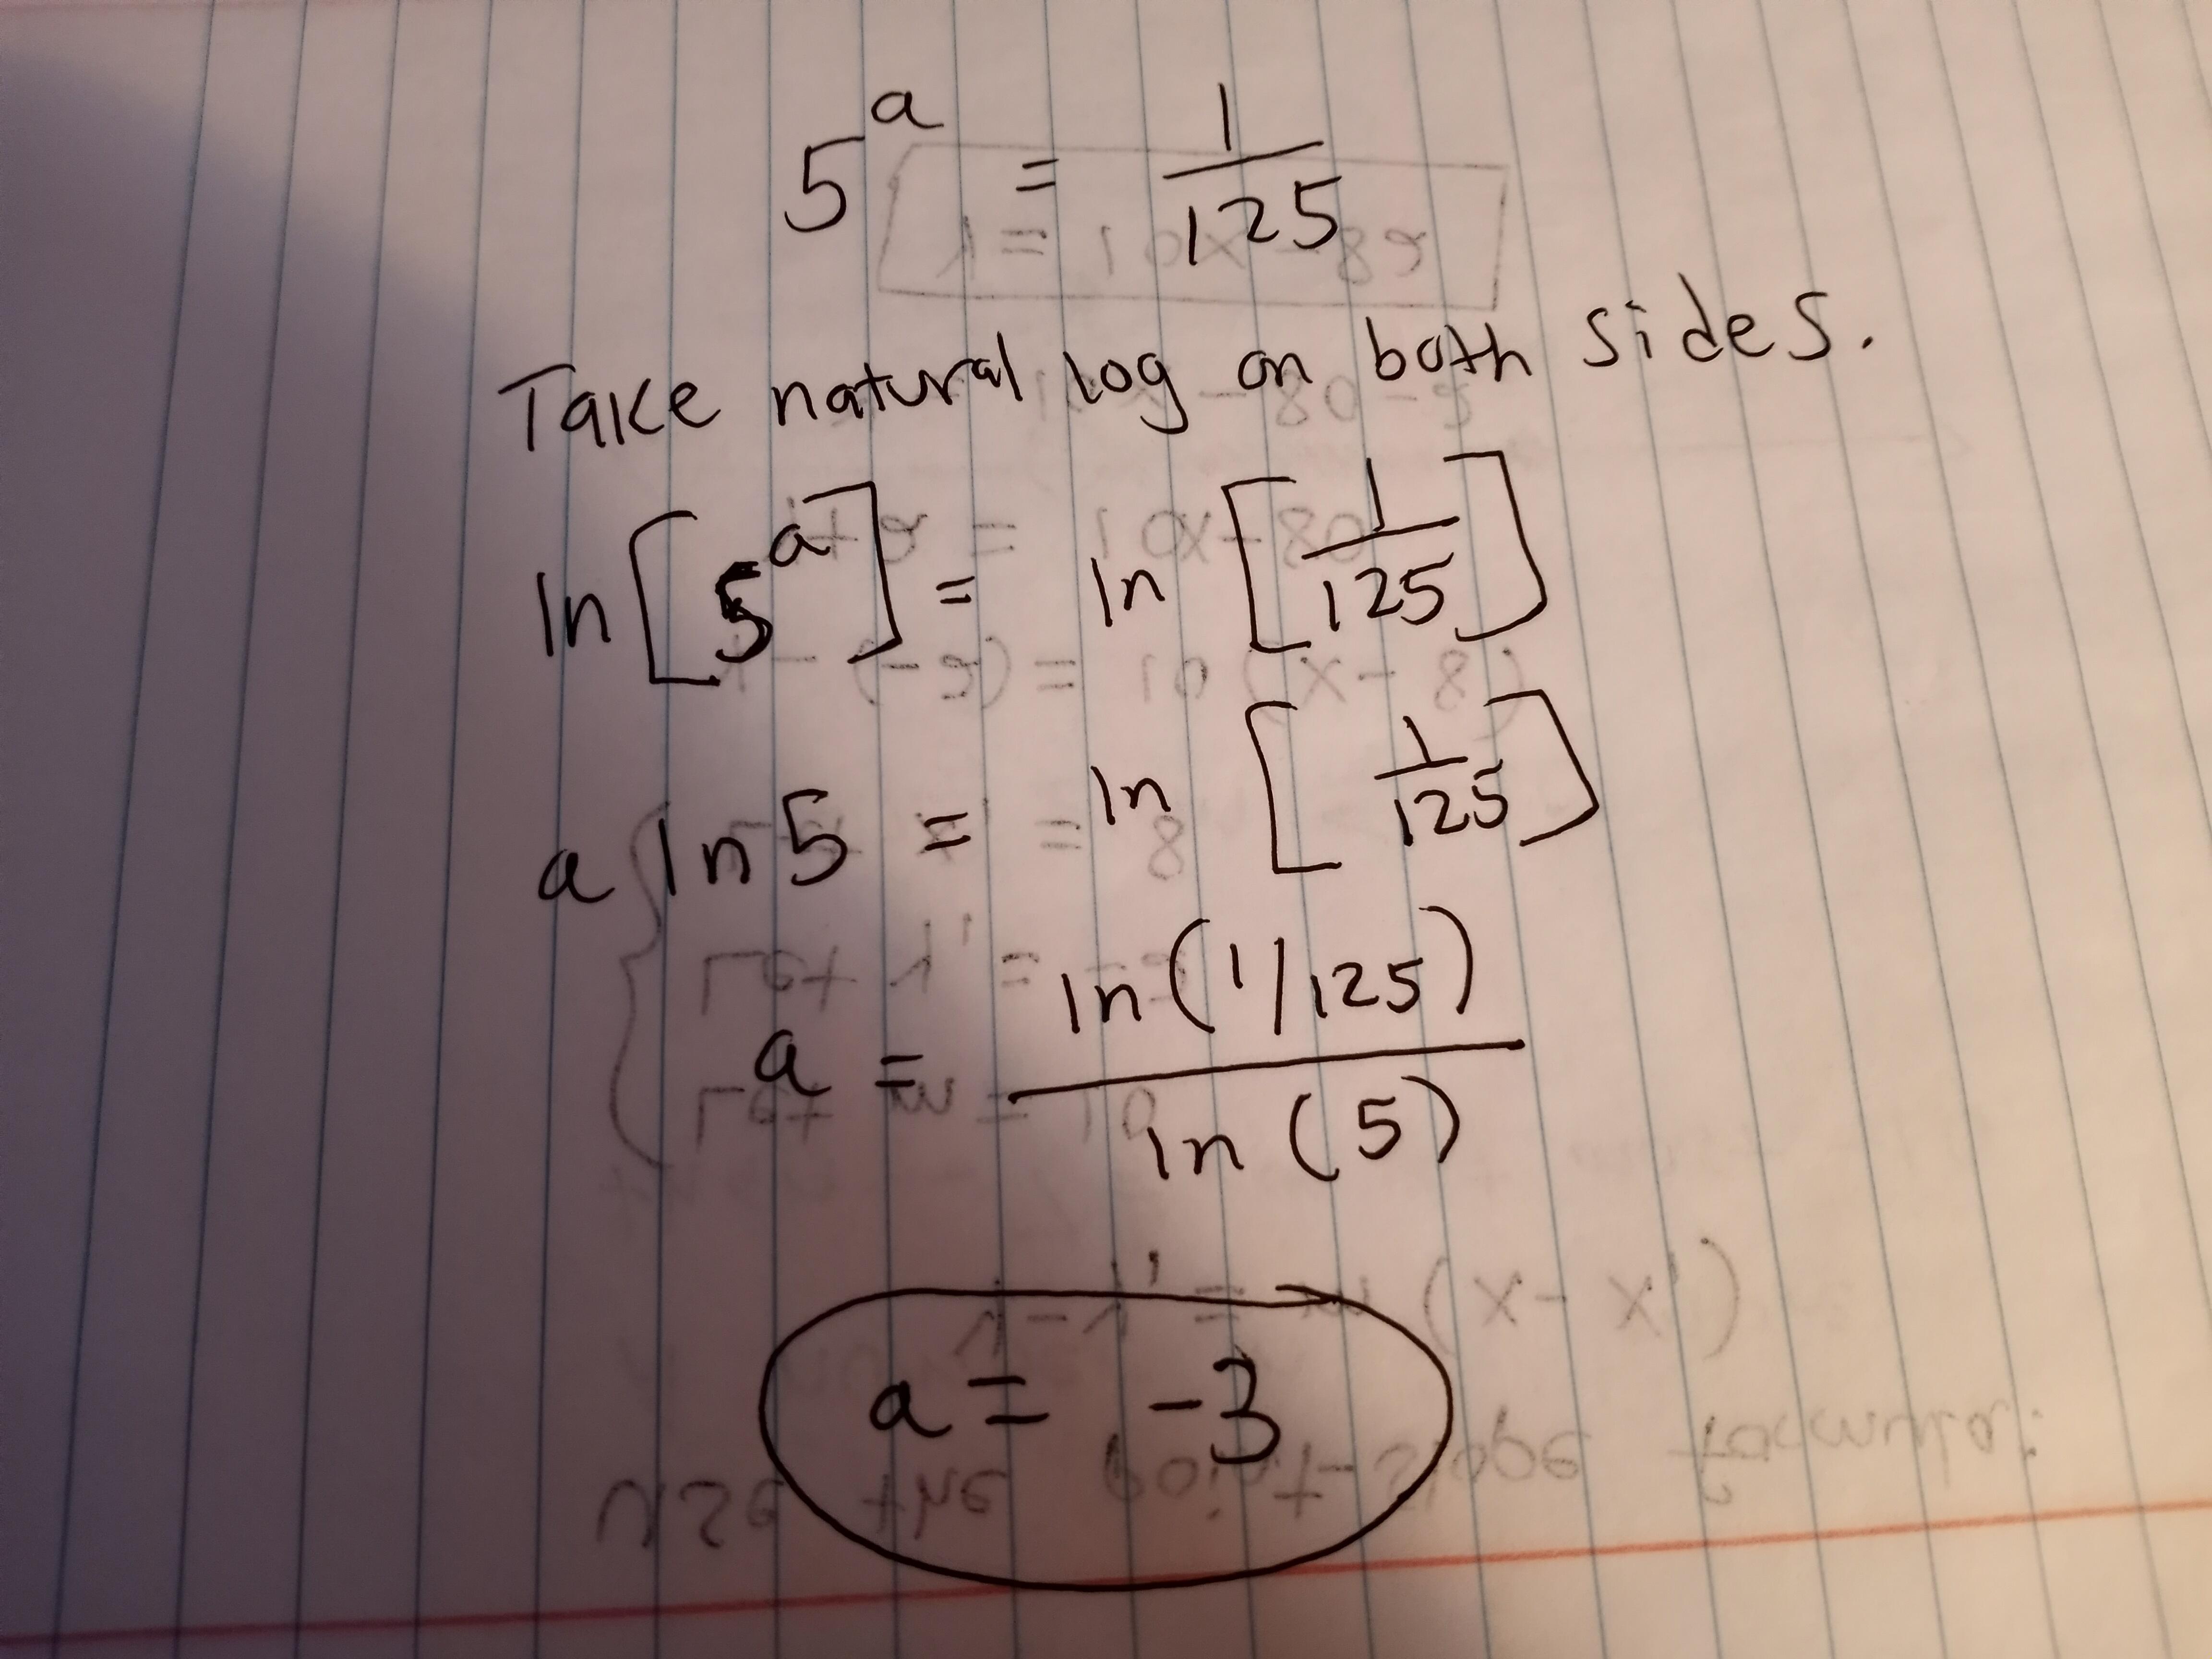 5^a = 1/125
Take natural log on both sides.
ln[5^a] = ln[1/125]
a ln 5 = ln[1/125]
a = ln(1/125) / ln(5)
a = -3